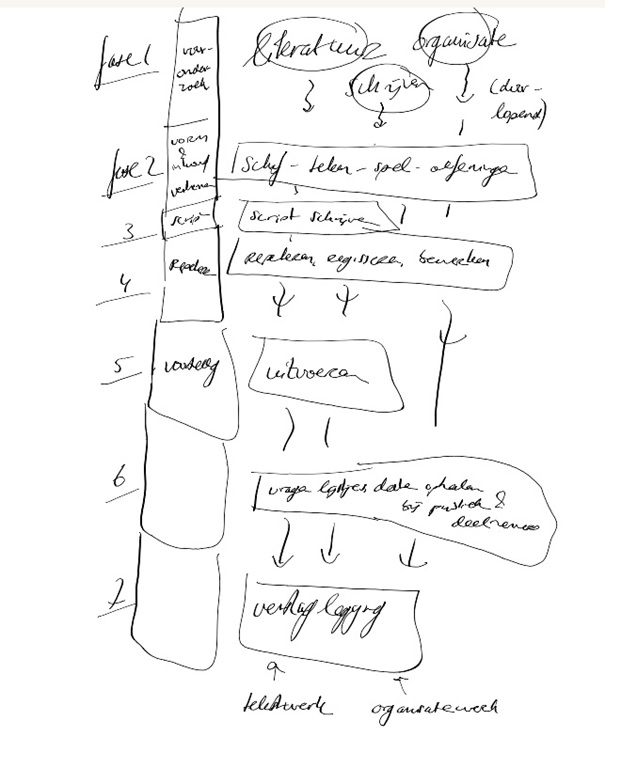 fase 1
voor-
onder
zoek
literatuur
organisatie
schrijven
(door-
lopend)
fase 2
vorm
&
schrijf - teken - spel - oefeninge
3
script
script schrijven
4
repeteren, regisseren, bewerken
5
voorstelling
uitvoeren
6
vragenlijstjes, data ophalen
bij publiek &
deelnemers
7
verslaglegging
tekstwerk
organisatiewerk